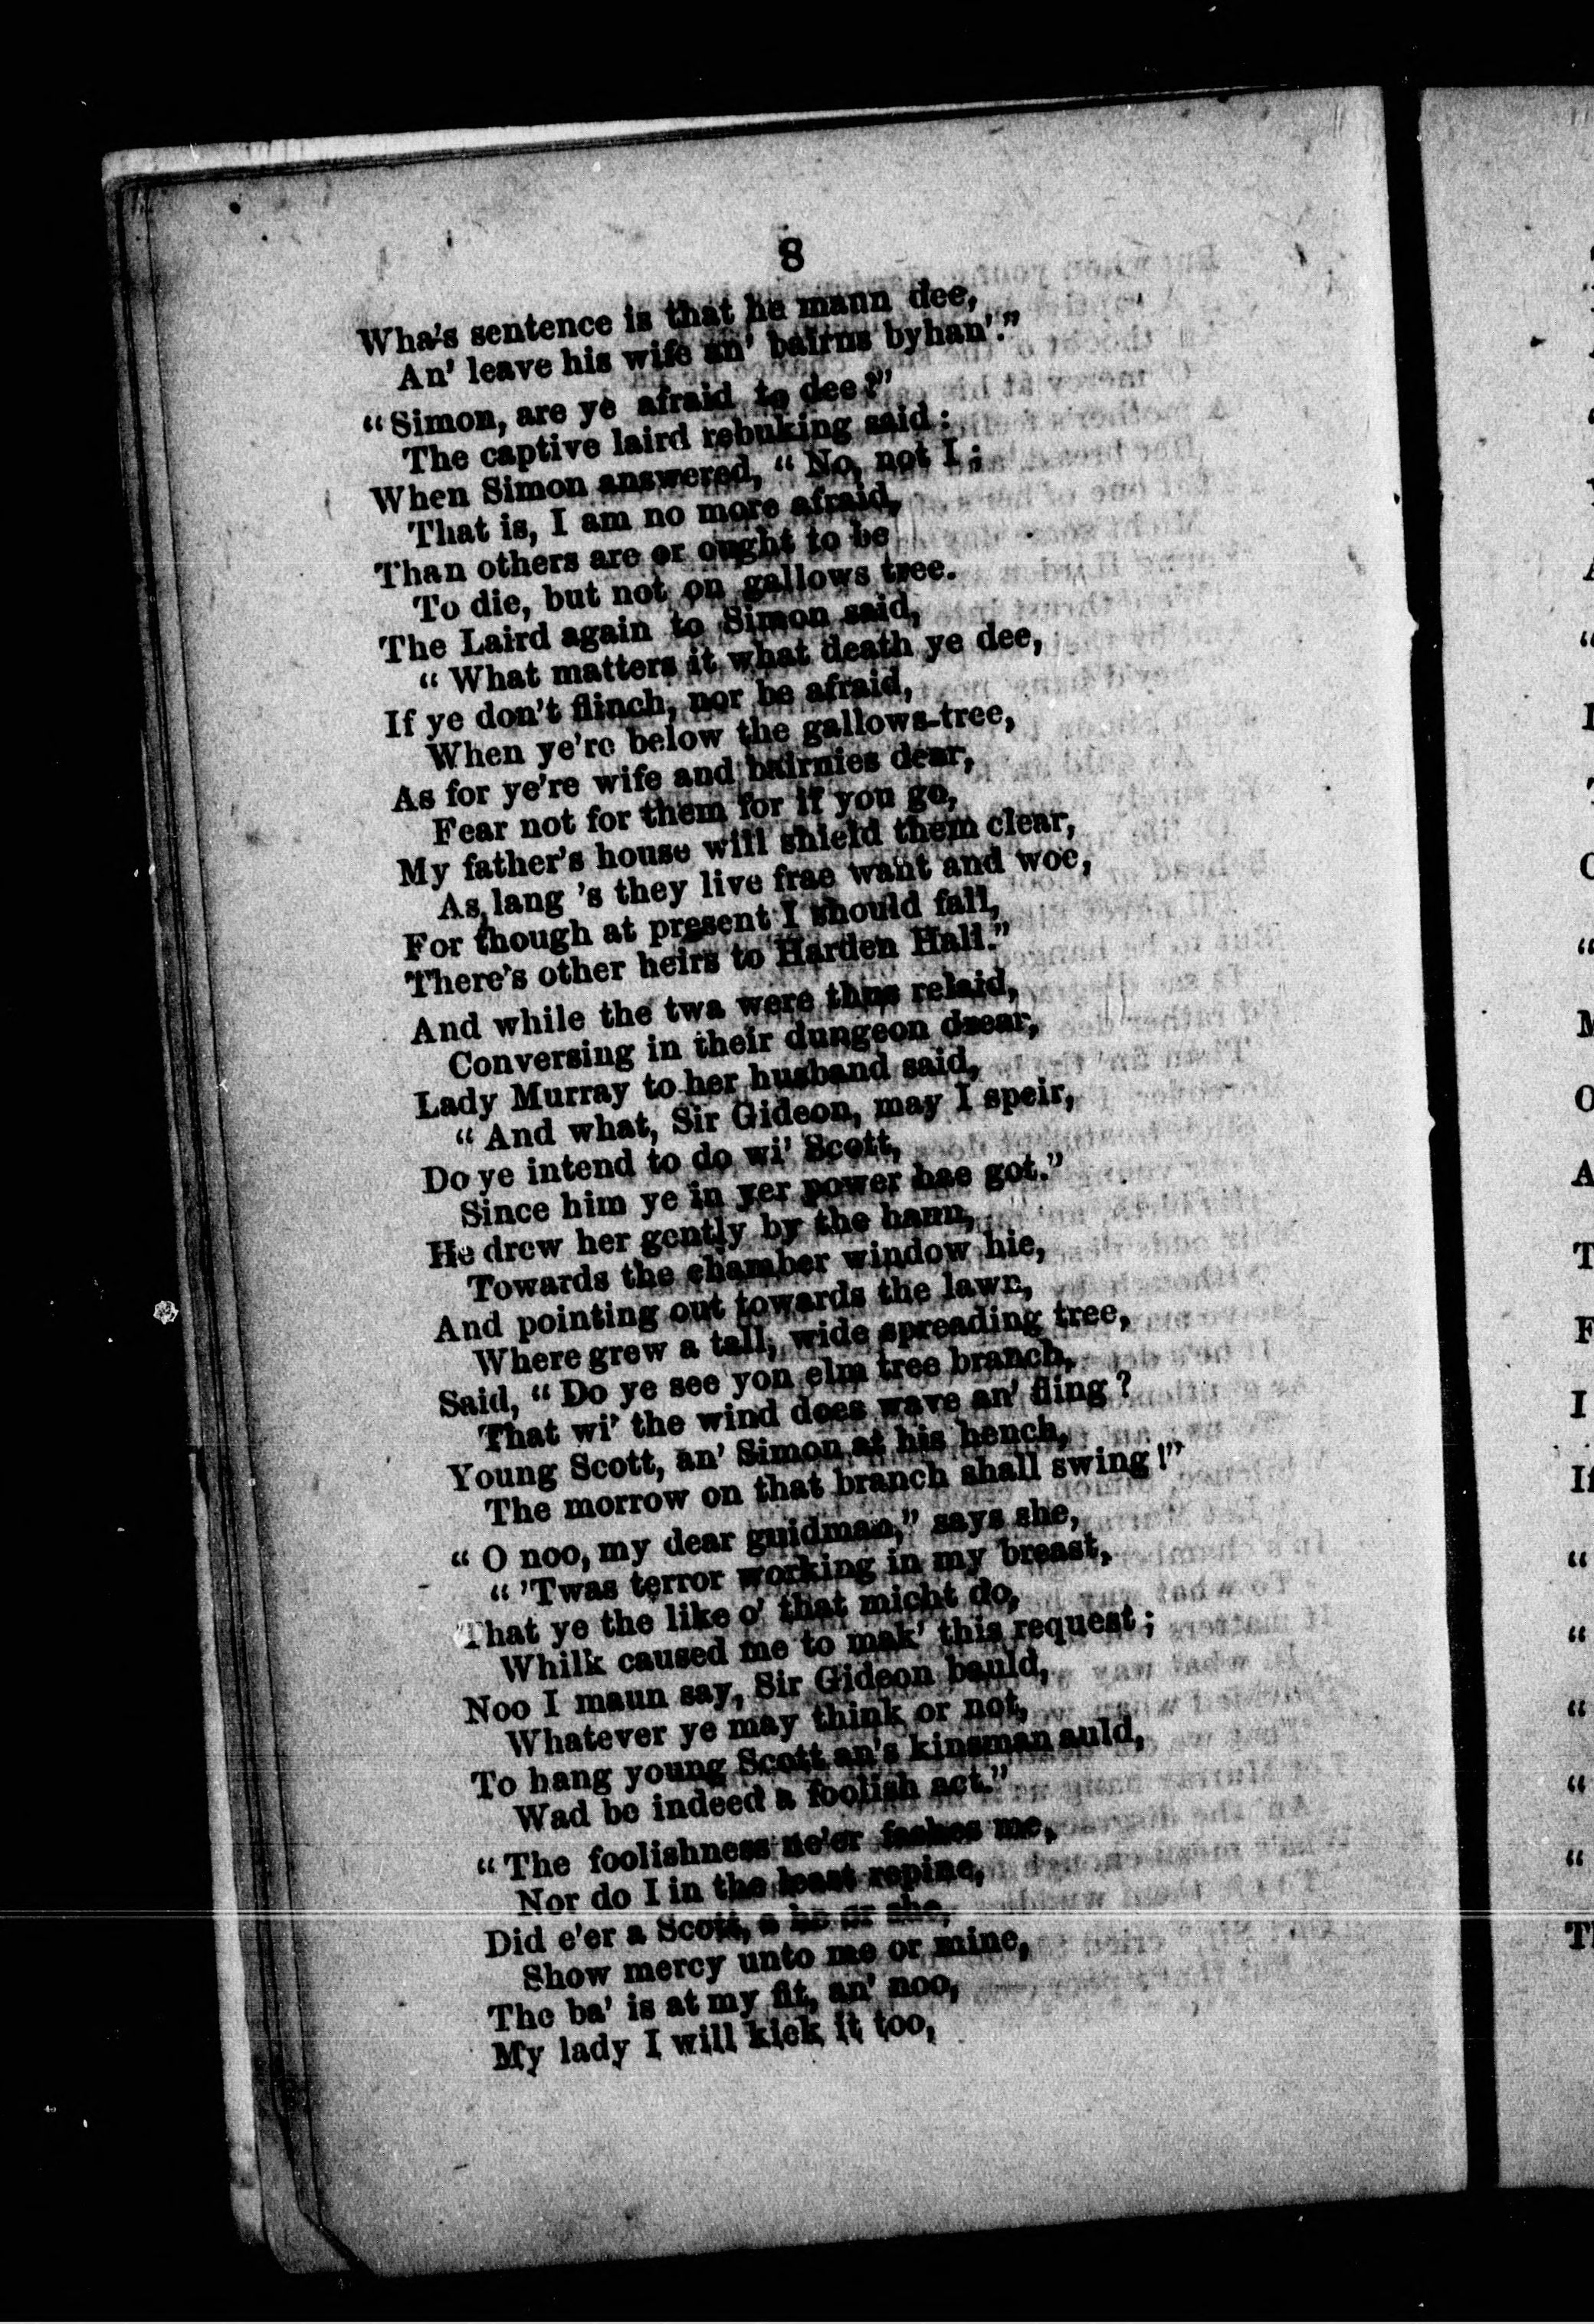 8
Wha's sentence is that he mann dee,
An' leave his wife an' bairns byhan'."
"Simon, are ye afraid to dee?"
The captive laird rebuking said:
When Simon answered, "No, not I;
That is, I am no more afraid,
Than others are or ought to be
To die, but not on gallows tree.
The Laird again to Simon said,
"What matters it what death ye dee,
If ye don't flinch, nor be afraid,
When ye're below the gallows-tree,
As for ye're wife and bairnies dear,
Fear not for them for if you go,
My father's house will shield them clear,
As lang 's they live frae want and woe,
For though at present I should fall,
There's other heirs to Harden Hall."
And while the twa were thus relaid,
Conversing in their dungeon drear,
Lady Murray to her husband said,
"And what, Sir Gideon, may I speir,
Do ye intend to do wi' Scott,
Since him ye in yer power hae got."
He drew her gently by the hann,
Towards the chamber window hie,
And pointing out towards the lawn,
Where grew a tall, wide spreading tree,
Said, "Do ye see yon elm tree branch,
That wi' the wind does wave an' fling?
Young Scott, an' Simon at his hench,
The morrow on that branch shall swing!"
"O noo, my dear guidman," says she,
"'Twas terror working in my breast,
That ye the like o' that micht do,
Whilk caused me to mak' this request;
Noo I maun say, Sir Gideon bauld,
Whatever ye may think or not,
To hang young Scott an's kinsman auld,
Wad be indeed a foolish act."
"The foolishness ne'er fashes me,
Nor do I in the least repine,
Did e'er a Scott, a he or she,
Show mercy unto me or mine,
The ba' is at my fit, an' noo,
My lady I will kick it too,